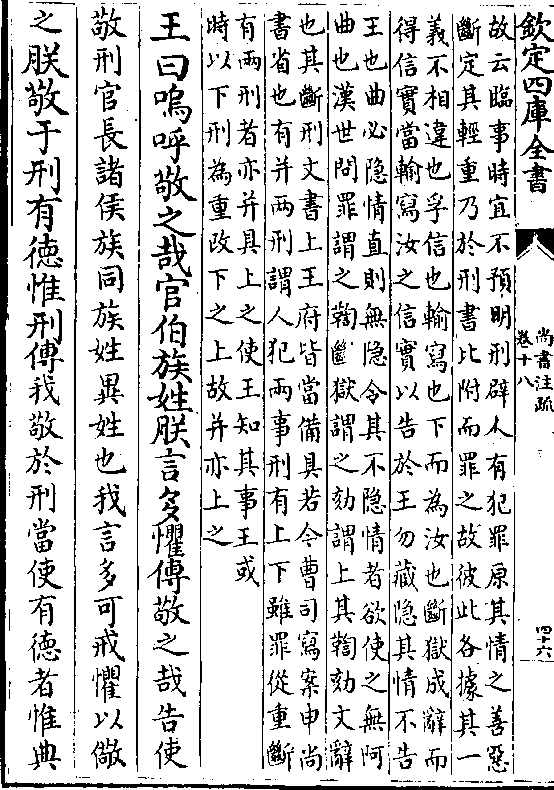 欽定四庫全書
尚書注疏
卷十八
四十六
故云臨事時宜不預明刑辟人有犯罪原其情之善惡
斷定其輕重乃於刑書比附而罪之故彼此各據其一
義不相違也孚信也輸寫也下而為汝也斷獄成辭而
得信實當輸寫汝之信實以告於王勿藏隐其情不告
王也曲必隐情直則無隐令其不隐情者欲使之無阿
曲也漢世問罪謂之鞫斷獄謂之劾謂上其鞫劾文辭
也其斷刑文書上王府皆當備具若今曹司寫案申尚
書省也有并兩刑謂人犯兩事刑有上下雖罪從重斷
有兩刑者亦并具上之使王知其事王或
時以下刑為重改下之上故并亦上之
王曰嗚呼敬之哉官伯族姓朕言多懼傳敬之哉告使
敬刑官長諸侯族同族姓異姓也我言多可戒懼以儆
之朕敬于刑有徳惟刑傳我敬於刑當使有徳者惟典